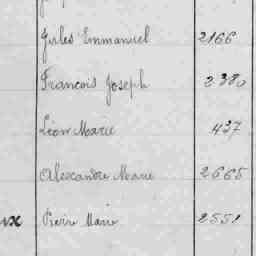 Jules Emmanuel 2166
Francois Joseph 2380
Léon Marie 437
Alexandre Marie 2665
Pierre Marie 2551